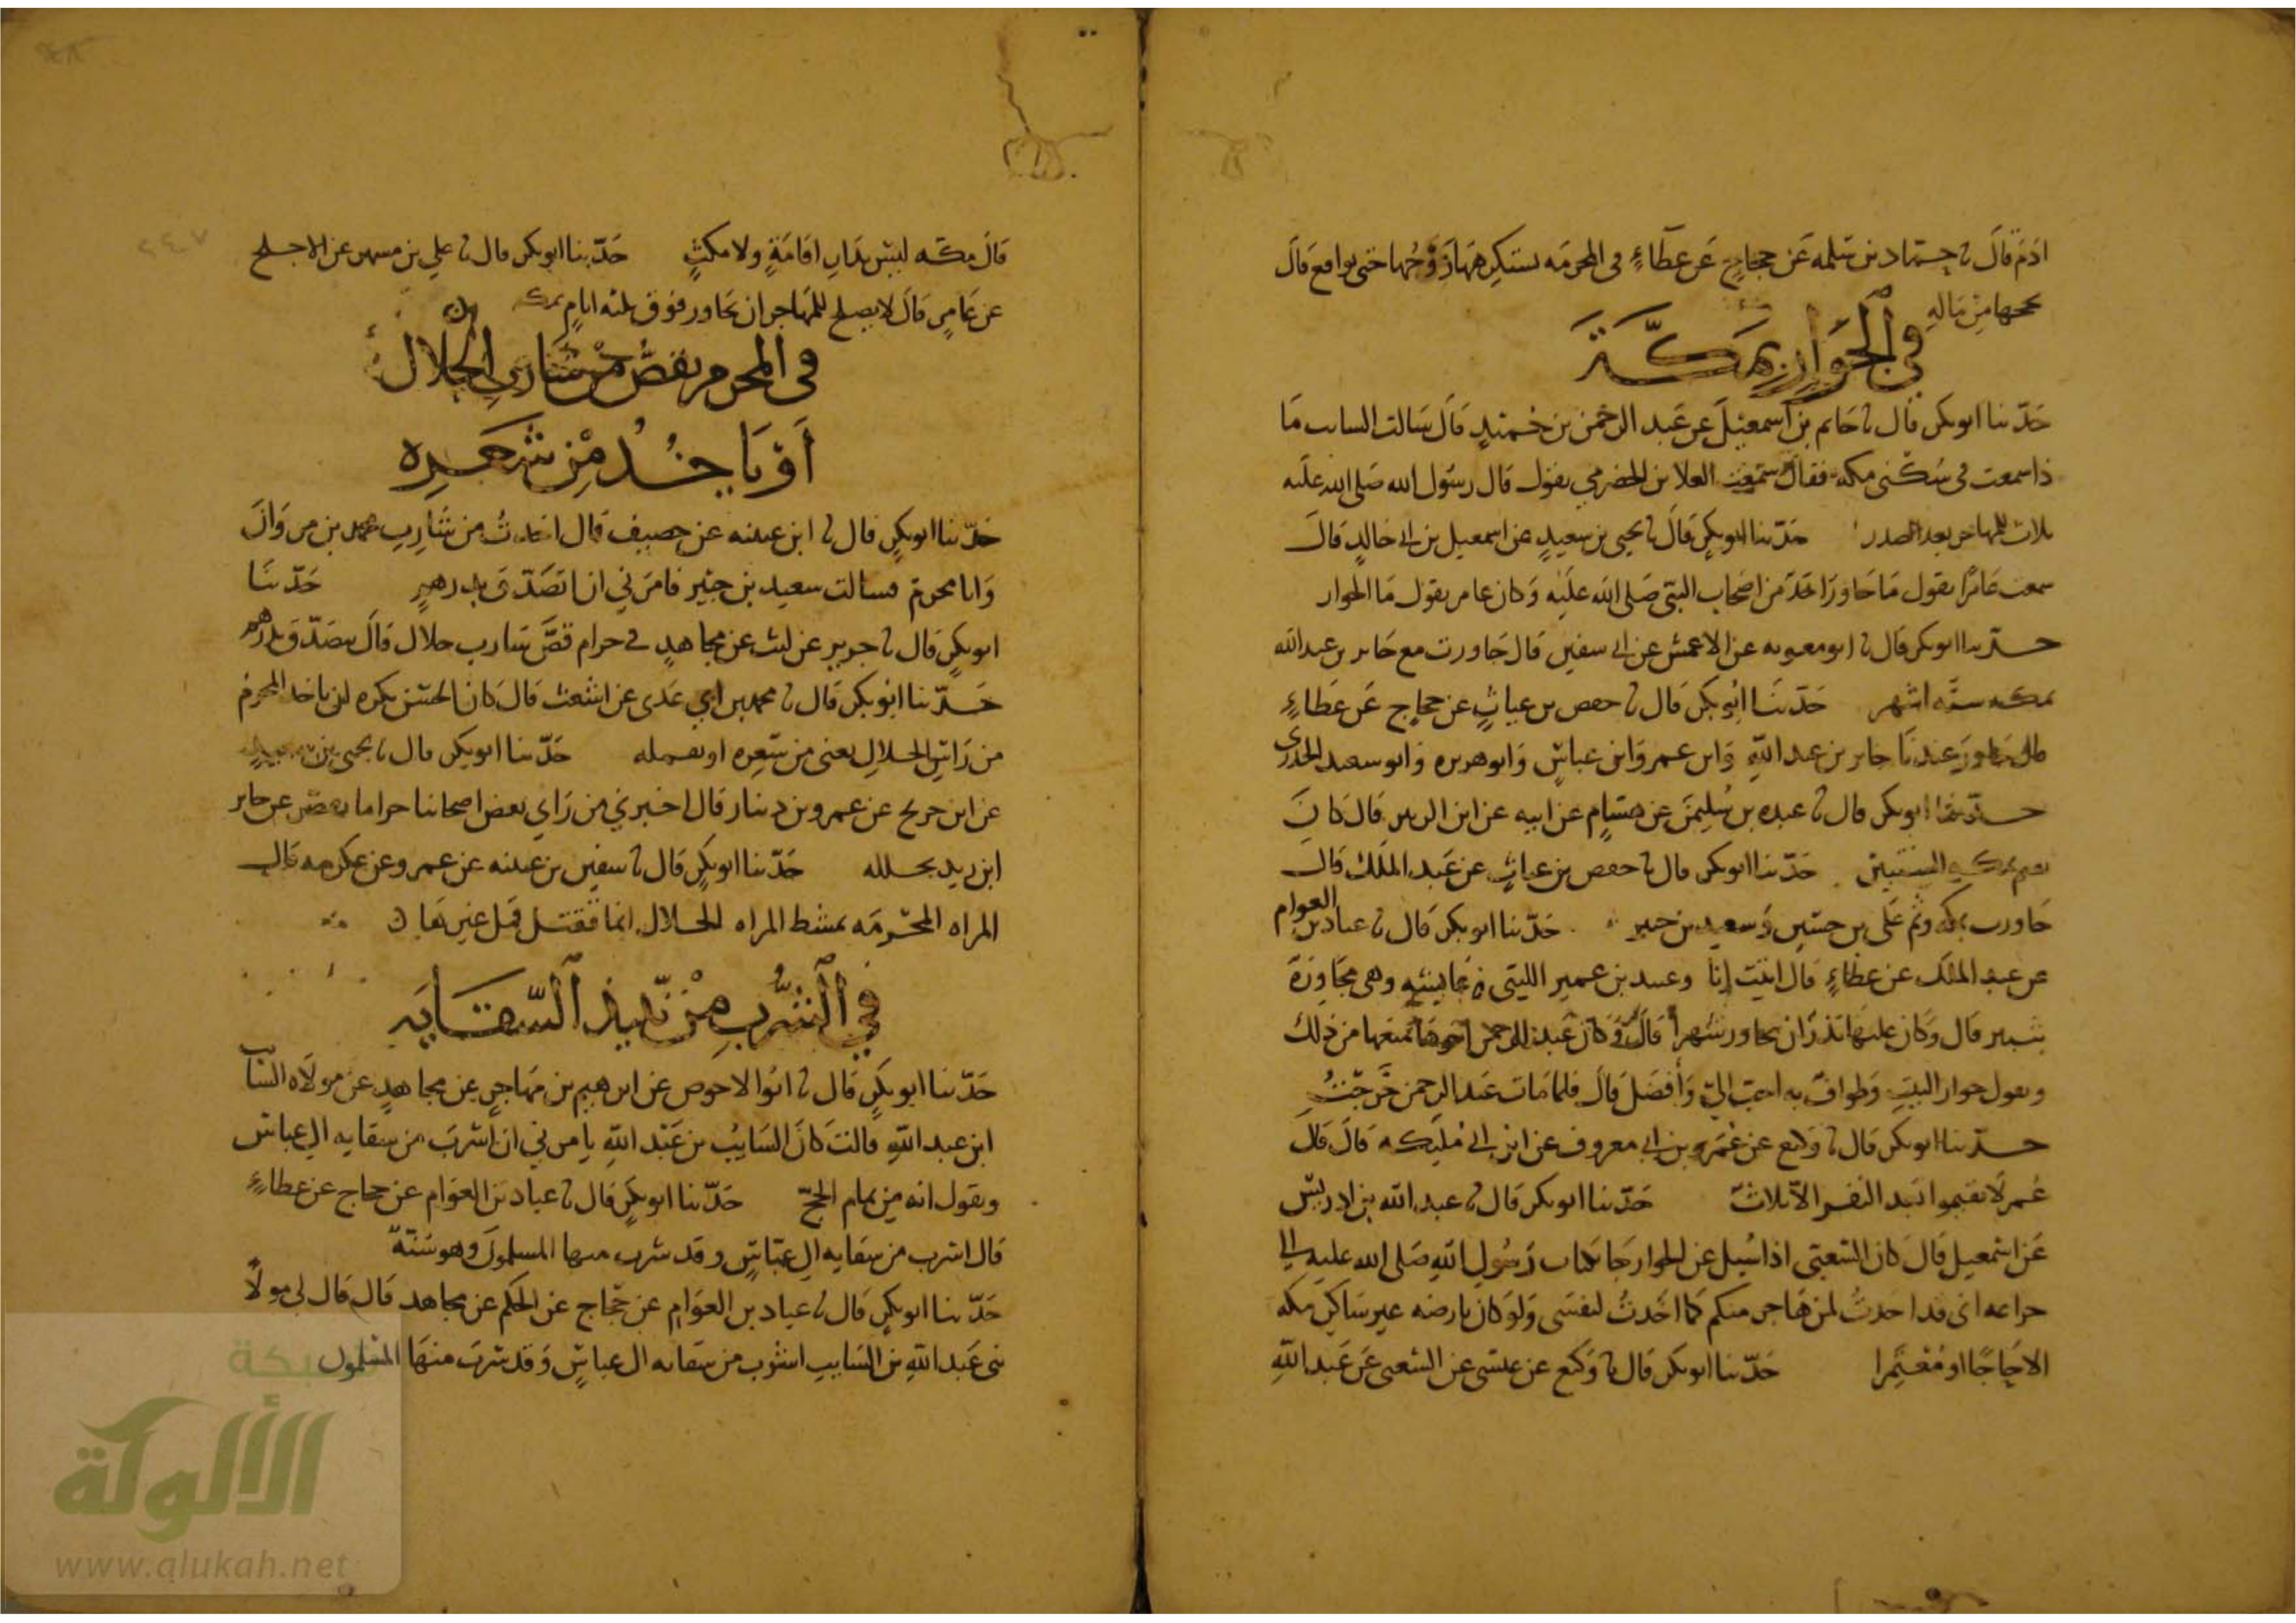 ادم قال نا حماد بن سلمه عن حجاج عن عطاء في المحرمه يستكرهها زوجها حتى يواقع قال
يحجها من ماله
في الجوار بمكة
حدثنا ابو بكر قال نا حاتم بن اسمعيل عن عبد الرحمن بن حميد قال سالت السايب ما
ذا سمعت في سكنى مكه فقال سمعت العلا بن الحضرمي يقول قال رسول الله صلى الله عليه
ثلاث للمهاجر بعد الصدر حدثنا ابو بكر قال نا يحيى بن سعيد عن اسمعيل بن ابي خالد قال
سمعت عامرا يقول ما جاور احد من اصحاب النبي صلى الله عليه وكان عامر يقول ما الجوار
حدثنا ابو بكر قال نا ابو معويه عن الاعمش عن ابي سفين قال جاورت مع جابر بن عبد الله
بمكه سته اشهر حدثنا ابو بكر قال نا حفص بن غياث عن حجاج عن عطاء
قال جاور عندنا جابر بن عبد الله وابن عمر وابن عباس وابو هريره وابو سعيد الخدري
حدثنا ابو بكر قال نا عبده بن سليمن عن هشام عن ابيه عن ابن الزبير قال كان
يقيم بمكه السنتين حدثنا ابو بكر قال نا حفص بن غياث عن عبد الملك قال
جاورت بمكه وثم علي بن حسين وسعيد بن جبير حدثنا ابو بكر قال نا عباد بن العوام
عن عبد الملك عن عطاء قال اتيت انا وعبيد بن عمير الليثي عايشه وهي مجاورة
بثبير قال وكان عليها نذر ان تجاور شهرا قال وكان عبد الرحمن اخوها يمنعها من ذلك
ويقول جوار البيت وطواف به احب الي وافضل قال فلما مات عبد الرحمن خرجت
حدثنا ابو بكر قال نا وكيع عن عمرو بن ابي معروف عن ابن ابي مليكه قال قال
عمر لا تقيموا بعد النفر الا ثلاثا حدثنا ابو بكر قال نا عبد الله بن ادريس
عن اسمعيل قال كان الشعبي اذا سيل عن الجوار جا بكتاب رسول الله صلى الله عليه الى
خزاعه اني قد اخذت لمن هاجر منكم كما اخذت لنفسي ولو كان بارضه غير ساكن مكه
الا حاجا او معتمرا حدثنا ابو بكر قال نا وكيع عن عيسى عن الشعبي عن عبد الله
قال مكه ليس بدار اقامة ولا مكث حدثنا ابو بكر قال نا علي بن مسهر عن الاجلح
عن عامر قال لا يصلح للمهاجر ان يجاور فوق ثلثه ايام بمكه
في المحرم يقص من شارب الحلال
او ياخذ من شعره
حدثنا ابو بكر قال نا ابن عيينه عن خصيف قال اخذت من شارب محمد بن مروان
وانا محرم فسالت سعيد بن جبير فامرني ان اتصدق بدرهم حدثنا
ابو بكر قال نا جرير عن ليث عن مجاهد في حرام قص شارب حلال قال يتصدق بدرهم
حدثنا ابو بكر قال نا محمد بن ابي عدي عن اشعث قال كان الحسن يكره ان ياخذ المحرم
من راس الحلال يعني من شعره او بقمله حدثنا ابو بكر قال نا يحيى بن سعيد
عن ابن جريج عن عمرو بن دينار قال اخبرني من راي بعض اصحابنا حراما يقص عن جابر
ابن زيد بجلله حدثنا ابو بكر قال نا سفين بن عيينه عن عمرو عن عكرمه قال
المراه المحرمه تمشط المراه الحلال انما تقتل قمل غيرها
في الشرب من نبيذ السقايه
حدثنا ابو بكر قال نا ابو الاحوص عن ابرهيم بن مهاجر عن مجاهد عن مولاه السايب
ابن عبد الله قالت كان السايب بن عبد الله يامرني ان اشرب من سقايه ال عباس
ويقول انه من تمام الحج حدثنا ابو بكر قال نا عباد بن العوام عن حجاج عن عطاء
قال اشرب من سقايه ال عباس وقد شرب منها المسلمون وهو سنة
حدثنا ابو بكر قال نا عباد بن العوام عن حجاج عن الحكم عن مجاهد قال قال لي مولا
ي عبد الله بن السايب اشرب من سقايه ال عباس وقد شرب منها المسلمون
٢٤٧
شبكة
الألوكة
www.alukah.net